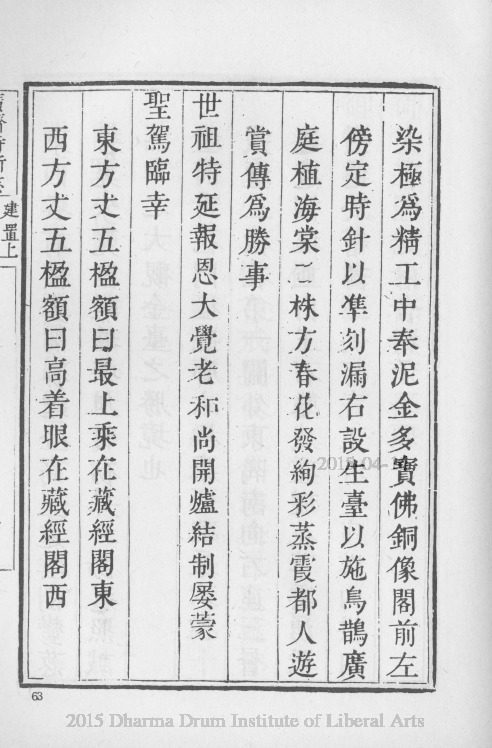 染極爲精工中奉泥金多寶佛銅像閣前左
傍定時針以準刻漏右設生臺以施鳥鵲廣
庭植海棠二株方春花發絢彩蒸霞都人遊
賞傳爲勝事
世祖特延報恩大覺老和尚開爐結制屡蒙
聖駕臨幸
東方丈五楹額曰最上乘在藏經閣東
西方丈五楹額曰高着眼在藏經閣西
建置上
63
2015 Dharma Drum Institute of Liberal Arts